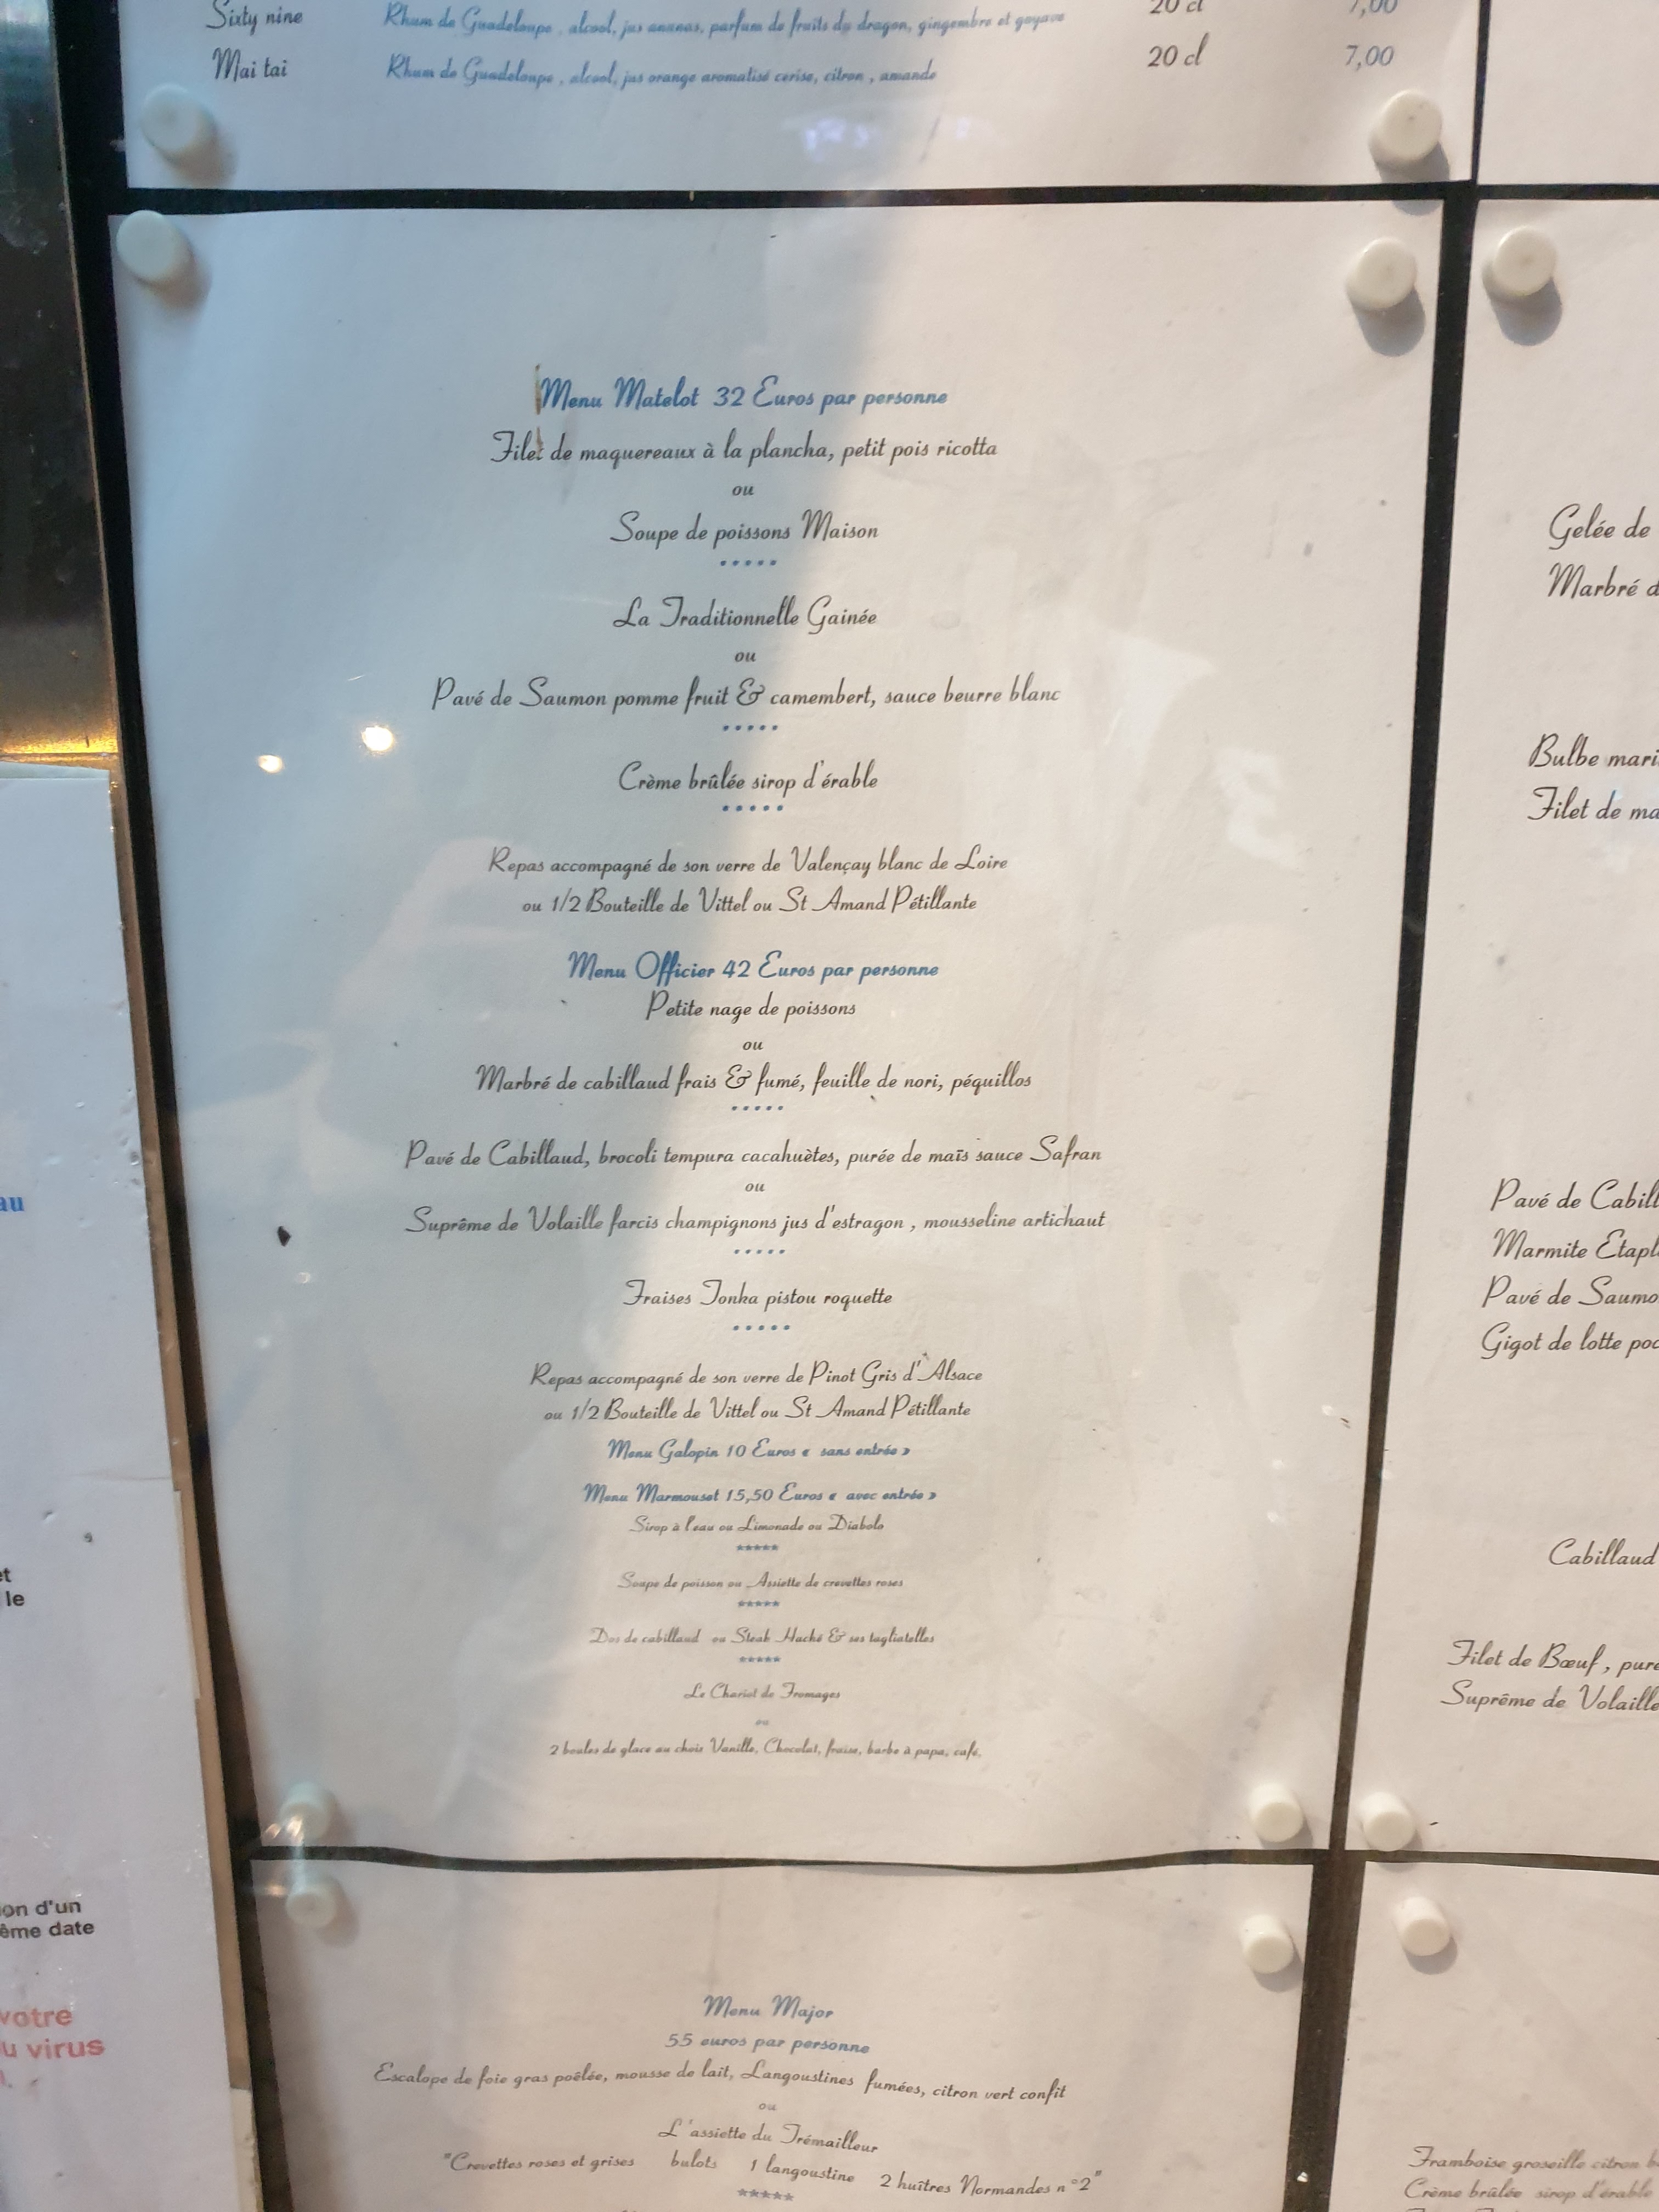 Sixty nine Rhum de Guadeloupe , alcool, jus ananas, parfum de fruits du dragon, gingembre et goyave 20 cl 7,00
Mai tai Rhum de Guadeloupe , alcool, jus orange aromatisé cerise, citron , amande 20 cl 7,00
Menu Matelot 32 Euros par personne
Filet de maquereaux à la plancha, petit pois ricotta
ou
Soupe de poissons Maison
•••••
La Traditionnelle Gainée
ou
Pavé de Saumon pomme fruit & camembert, sauce beurre blanc
•••••
Crème brûlée sirop d'érable
•••••
Repas accompagné de son verre de Valençay blanc de Loire
ou 1/2 Bouteille de Vittel ou St Amand Pétillante
Menu Officier 42 Euros par personne
Petite nage de poissons
ou
Marbré de cabillaud frais & fumé, feuille de nori, péquillos
•••••
Pavé de Cabillaud, brocoli tempura cacahuètes, purée de maïs sauce Safran
ou
Suprême de Volaille farcis champignons jus d'estragon , mousseline artichaut
•••••
Fraises Tonka pistou roquette
•••••
Repas accompagné de son verre de Pinot Gris d'Alsace
ou 1/2 Bouteille de Vittel ou St Amand Pétillante
Menu Galopin 10 Euros « sans entrée »
Menu Marmouset 15,50 Euros « avec entrée »
Sirop à l'eau ou Limonade ou Diabolo
*****
Soupe de poisson ou Assiette de crevettes roses
*****
Dos de cabillaud ou Steak Haché & ses tagliatelles
*****
Le Chariot de Fromages
ou
2 boules de glace au choix Vanille, Chocolat, fraise, barbe à papa, café,
Menu Major
55 euros par personne
Escalope de foie gras poêlée, mousse de lait, Langoustines fumées, citron vert confit
ou
L'assiette du Trémailleur
"Crevettes roses et grises bulots 1 langoustine 2 huîtres Normandes n°2"
*****
Gelée de
Marbré d
Bulbe mari
Filet de ma
Pavé de Cabill
Marmite Etapl
Pavé de Saumo
Gigot de lotte poc
Cabillaud
Filet de Bœuf , puré
Suprême de Volaille
Framboise groseille citron b
Crème brûlée sirop d'érable
au
et
le
ion d'un
ême date
votre
u virus